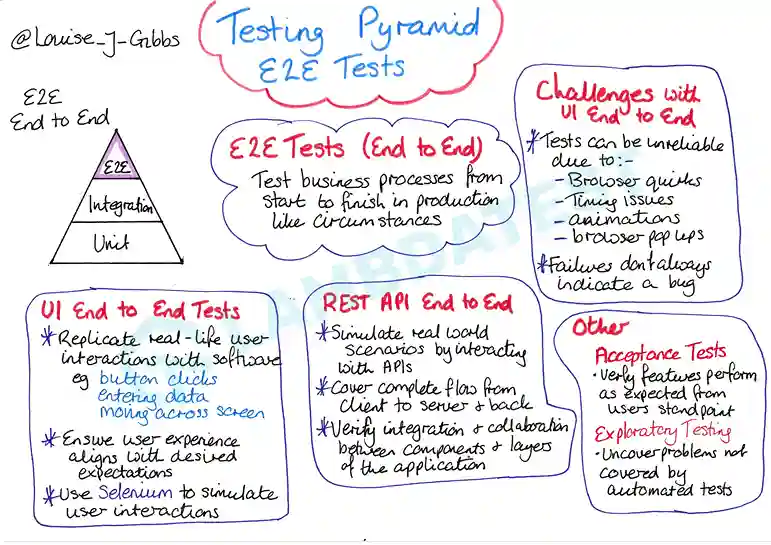 @Louise_J_Gibbs
Testing Pyramid
E2E Tests
E2E
End to End
E2E
Integration
Unit
E2E Tests (End to End)
Test business processes from
start to finish in production
like circumstances
Challenges with
UI End to End
* Tests can be unreliable
due to:-
- Browser quirks
- Timing issues
- animations
- browser pop ups
* Failures don't always
indicate a bug
UI End to End Tests
* Replicate real-life user
interactions with software
eg button clicks
entering data
moving across screen
* Ensure user experience
aligns with desired
expectations
* Use Selenium to simulate
user interactions
REST API End to End
* Simulate real world
scenarios by interacting
with APIs
* Cover complete flow from
client to server & back
* Verify integration & collaboration
between components & layers
of the application
Other
Acceptance Tests
• Verify features perform
as expected from
users standpoint
Exploratory Testing
• Uncover problems not
covered by
automated tests
LAMBDATEST